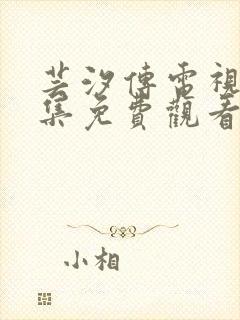 芸汐傳電視
集免費觀看
小相